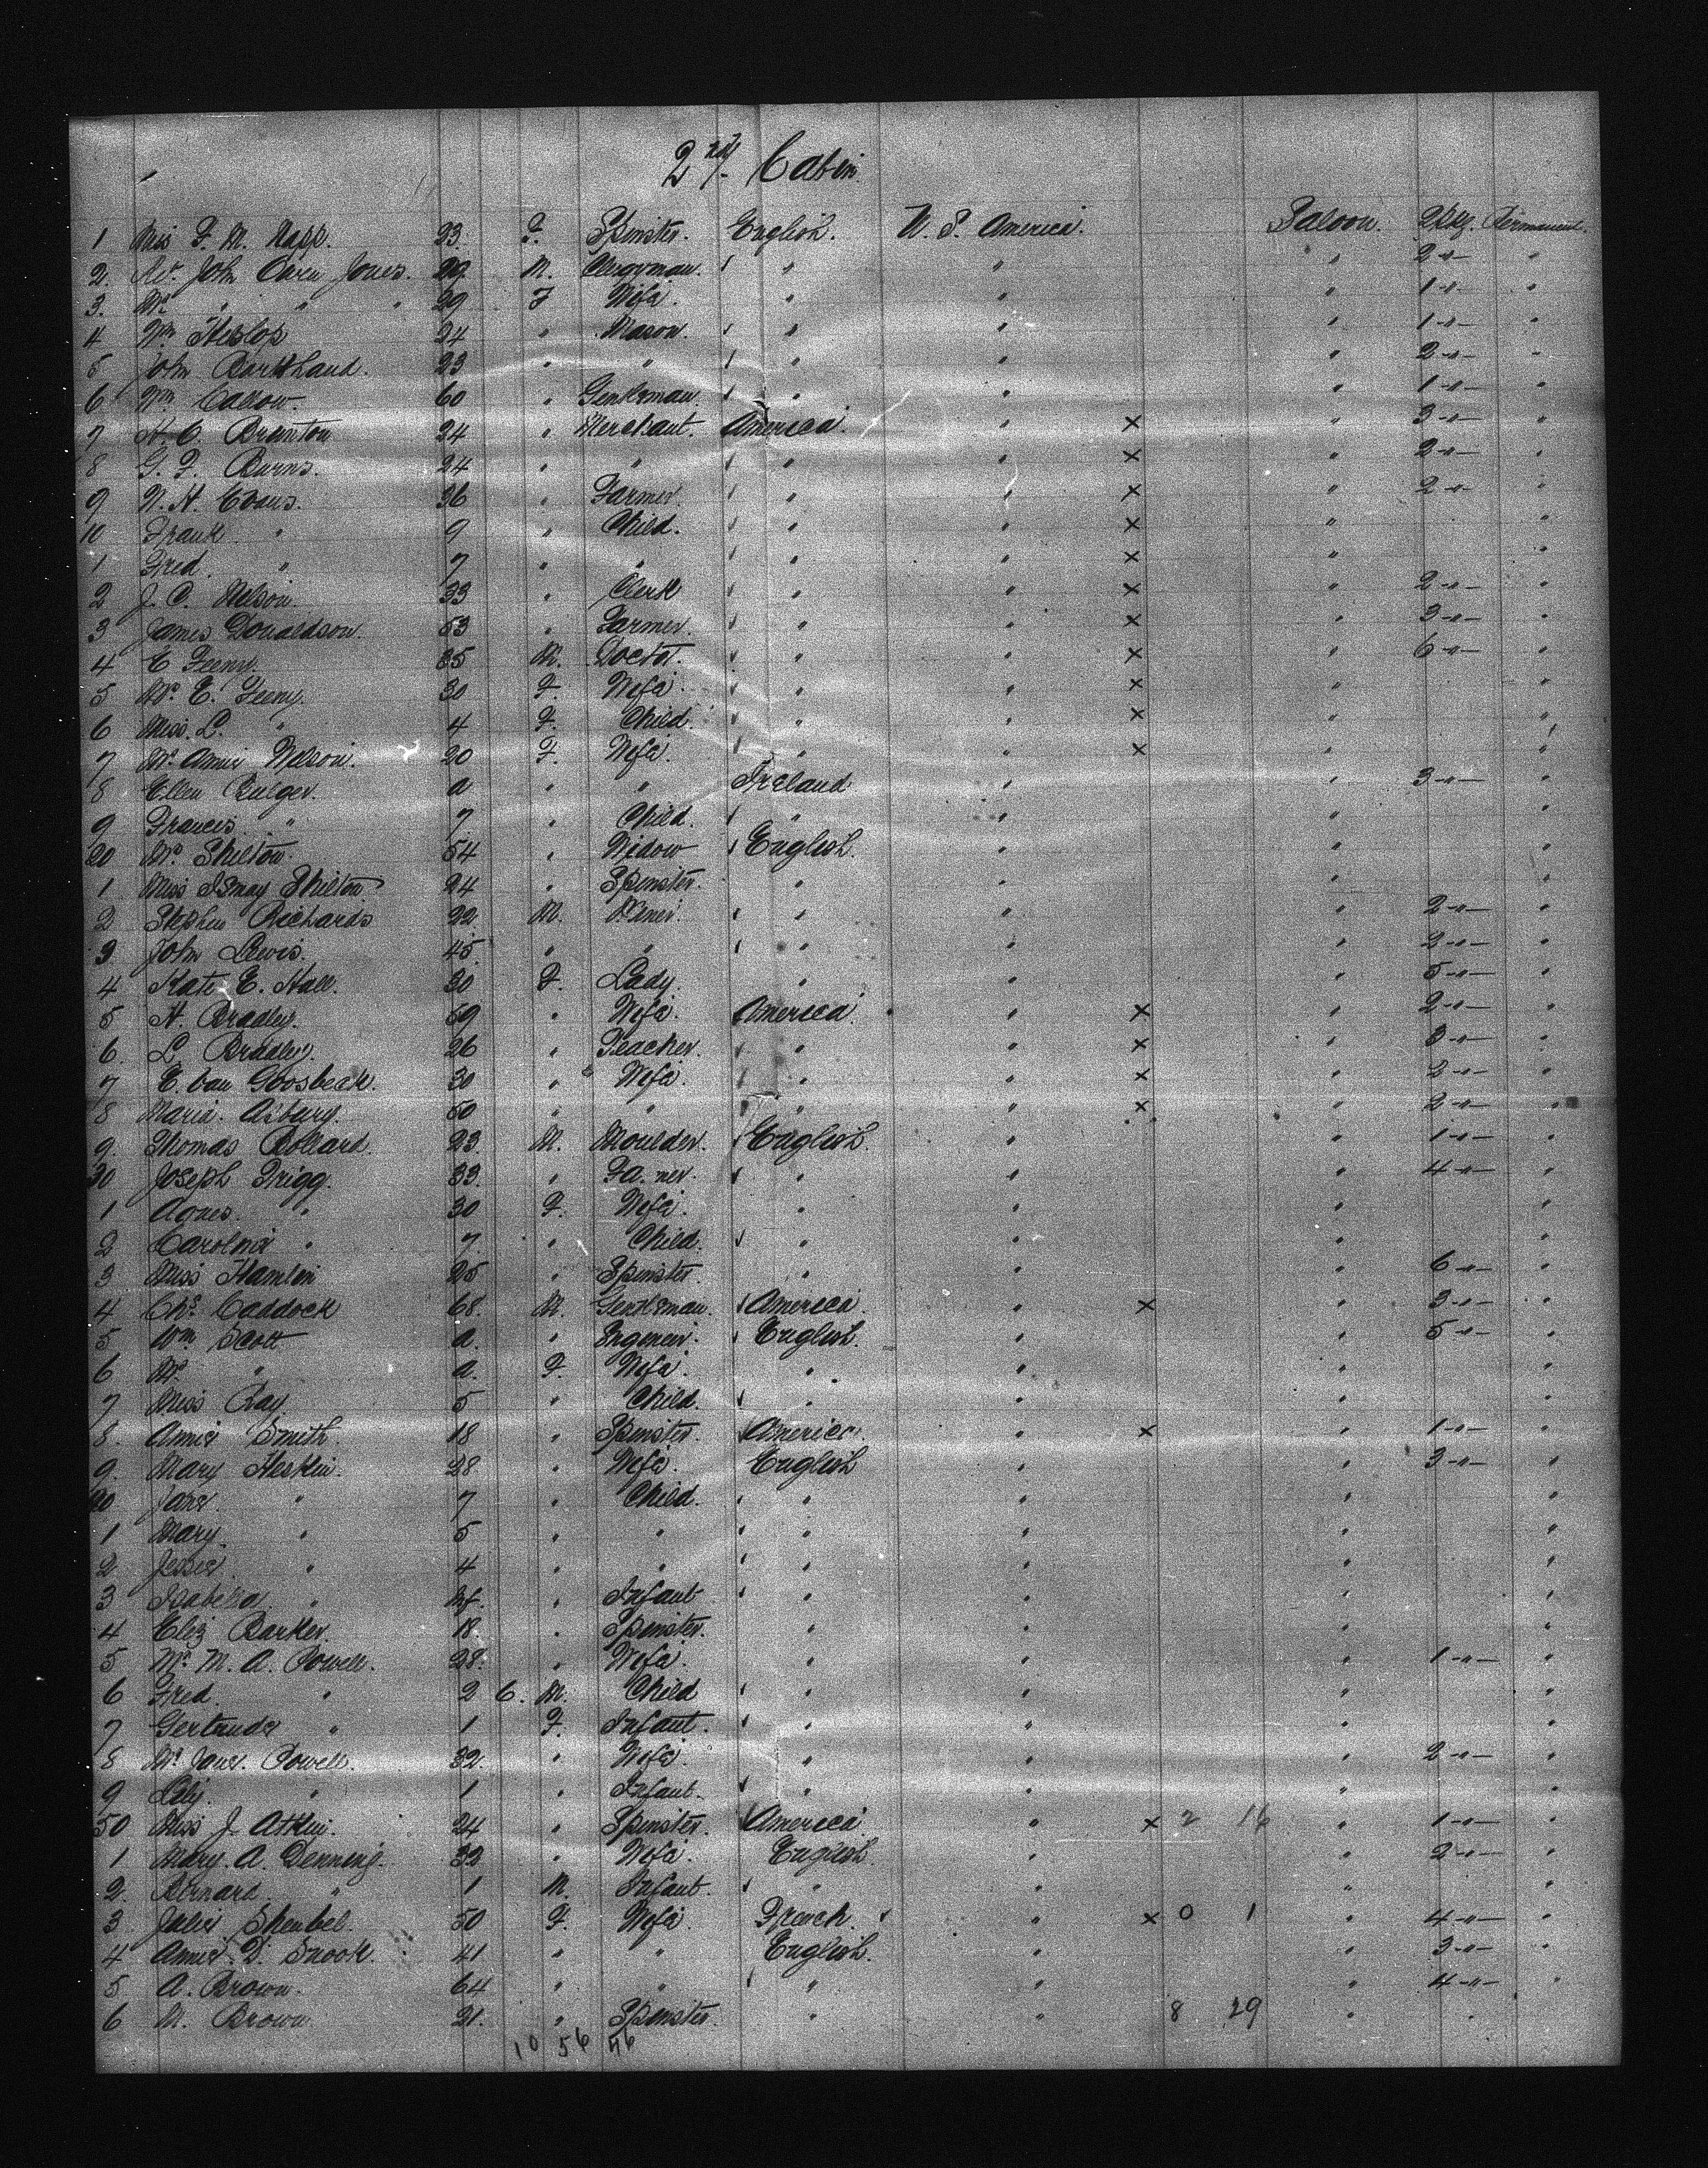 2nd Cabin
1 Miss F. M. Napp. 23 F. Spinster. English. U. S. America. Saloon. 2 pkg. Permanent.
2. Rev. John Owen Jones. 29 M. Clergyman. " " " 2 -"- "
3. Mrs " " " 29 F Wife. " " " 1 -"- "
4 Wm Heslop 24 " Mason. " " " 1 -"- "
5 John Barkhand. 23 " " " " " 2 -"- "
6 Wm Callow. 60 " Gentleman. " " " 1 -"- "
7 H. C. Brenton 24 " Merchant. America. " x " 3 -"- "
8 G. F. Burns. 24 " " " " x " 2 -"- "
9 W. H. Evans. 36 " Farmer. " " x " 2 -"- "
10 Frank " 9 " Child. " " x " "
1 Fred. " 7 " " " " x " "
2 J. C. Nelson. 33 " Clerk " " x " 2 -"- "
3 James Donaldson. 53 " Farmer. " " x " 3 -"- "
4 E Feeny. 35 M. Doctor. " " x " 6 -"- "
5 Mrs E. Feeny. 30 F. Wife. " " x " "
6 Miss. L. " 4 F. Child. " " x " "
7 Mrs Annie Nelson. 20 F. Wife. " " x " "
8 Ellen Bulger. a " " Ireland " " 3 -"- "
9 Francis. " 7 " Child. " " " "
20 Mrs Skelton. 54 " Widow English. " " "
1 Miss Ismay Skelton 24 " Spinster. " " " "
2 Stephen Richards 22 M. Miner. " " " 2 -"- "
3 John Lewis. 45. " " " " " 2 -"- "
4 Kate E. Hall. 30 F. Lady. " " " 5 -"- "
5 H. Bradley. 59 " Wife. America. " x " 2 -"- "
6. L. Bradley. 26 " Teacher. " " x " 3 -"- "
7 E. van Goosbeek. 30 " Wife. " " x " 2 -"- "
8 Maria. Asbury. 50 " " " " x " 2 -"- "
9. Thomas Bollard. 23. M. Moulder. English. " " 1 -"- "
30 Joseph Trigg. 33. " Farmer. " " " 4 -"- "
1 Agnes. " 30 F. Wife. " " " "
2 Caroline " 7. " Child. " " " "
3 Miss Hamlin 25 " Spinster. " " " 6 -"- "
4 Chs. Caddock 68. M. Gentleman. America. " x " 3 -"- "
5 Wm Scott a. " Engineer. English. " " 5 -"- "
6 Mrs " a. F. Wife. " " " "
7 Miss Ray 5 " Child. " " " "
8. Annie Smith. 18 " Spinster. America. " x " 1 -"- "
9. Mary Heskin. 28 " Wife. English " " 3 -"- "
40 Jane. " 7 " Child. " " " "
1 Mary. " 5 " " " " " "
2 Jessie. " 4 " " " " " "
3 Isabella. " Inf. " Infant " " " "
4 Eliz Barker. 18. " Spinster. " " " "
5 Mrs M. A. Powell. 28. " Wife. " " " 1 -"- "
6 Fred. " 2 6. M. Child " " " "
7 Gertrude " 1 F. Infant. " " " "
8 Mrs Jane. Powell. 32. " Wife " " " 2 -"- "
9 Lily. " 1 " Infant. " " " "
50 Miss J. Atkin. 24 " Spinster. America. " x 2 16 " 1 -"- "
1 Mary. A. Denning. 32 " Wife. English " " 2 -"- "
2. Bernard. " 1 M. Infant. " " " "
3 Julie Sheubel. 50 F. Wife. French. " x 0 1 " 4 -"- "
4 Annie. D. Snook. 41 " " English. " " 3 -"- "
5 A. Brown. 64 " " " " " 4 -"- "
6 M. Brown. 21. " Spinster. " " 8 29 " "
10 56 46